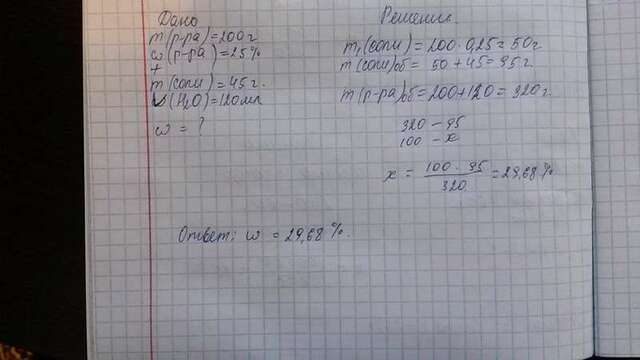 Дано
m(р-ра)=200г
ω(р-ра)=25%
+
m(соли)=45г.
V(H₂O)=120мл
ω = ?
Решение.
m₁(соли) = 200·0,25 = 50г.
m(соли)об = 50 + 45 = 95г.
m(р-ра)об = 200+120 = 320г.
320 – 95
100 – x
x = 100·95/320 = 29,68%
Ответ: ω = 29,68%.